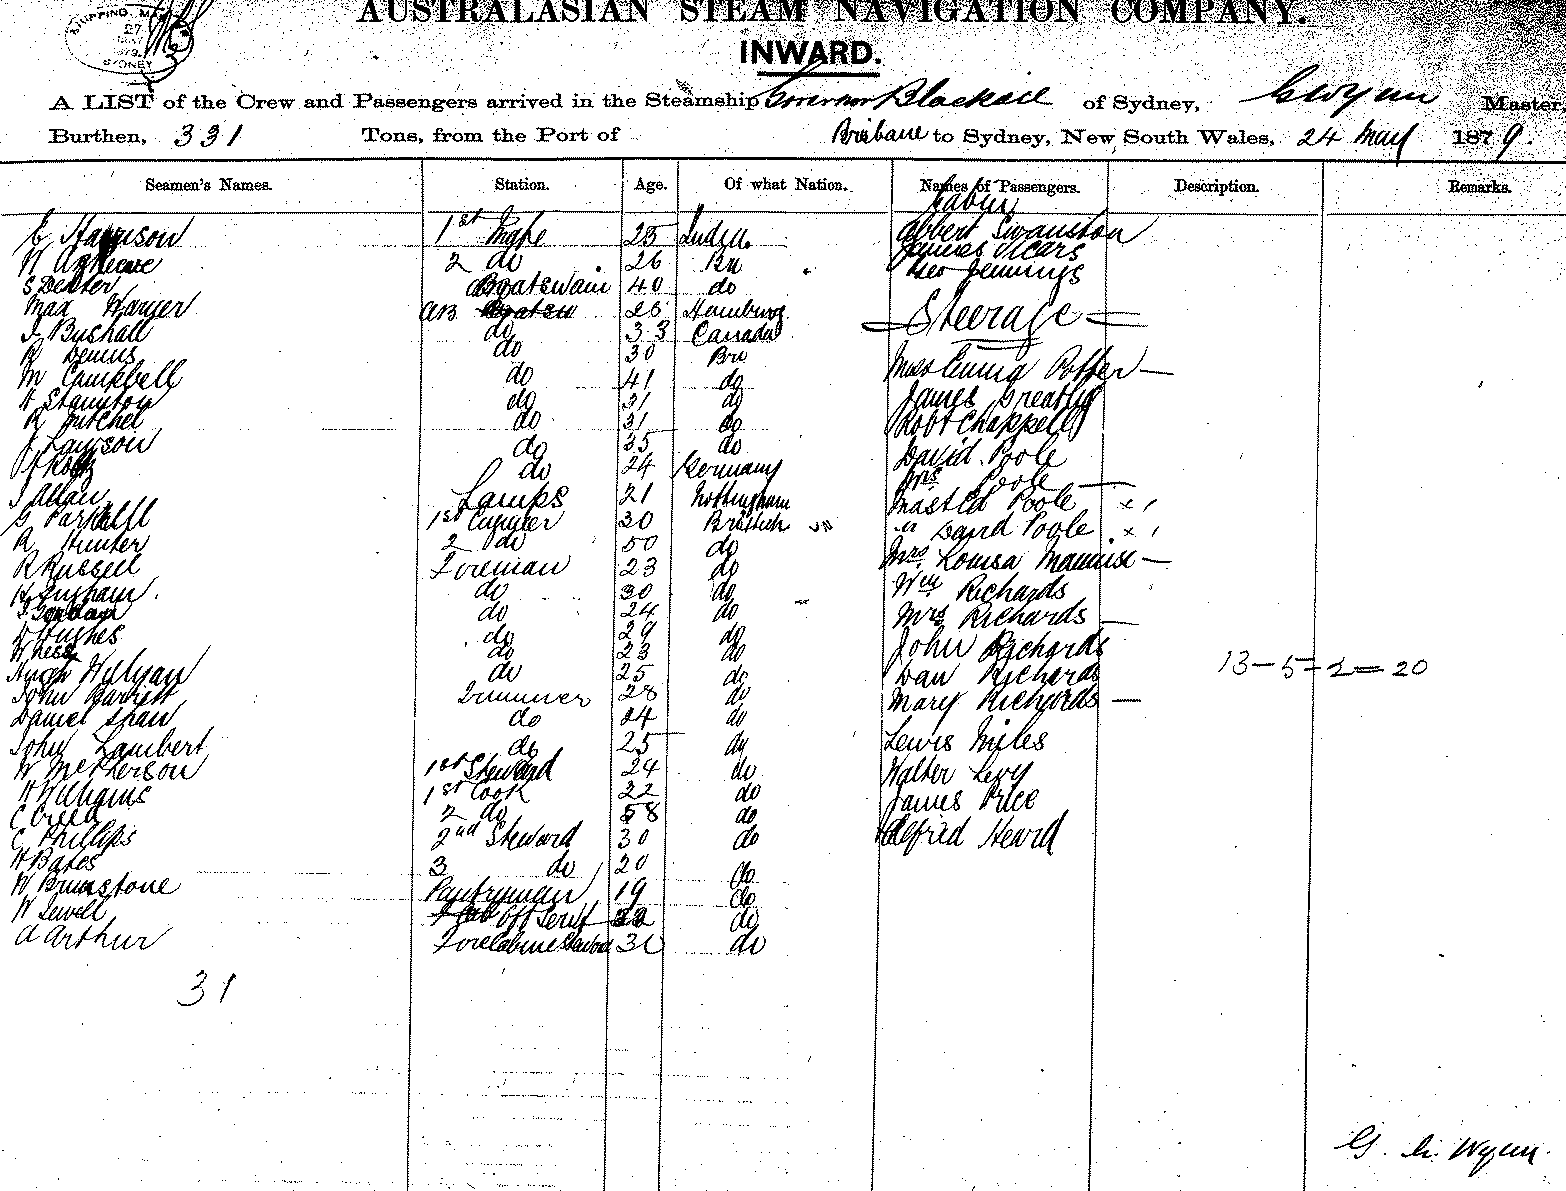 SHIPPING MASTER
27
SYDNEY
AUSTRALASIAN STEAM NAVIGATION COMPANY.
INWARD.
A LIST of the Crew and Passengers arrived in the Steamship Governor Blackall of Sydney, G Wynn Master,
Burthen, 331 Tons, from the Port of Brisbane to Sydney, New South Wales, 24 May 1879.
Seamen's Names. Station. Age. Of what Nation. Names of Passengers. Description. Remarks.
Cabin
Harrison 1st Mate 25 Albert Swanston
2 do 26 James Vicars
S Dexter Boatswain 40 do Geo Jennings
Max AB 26 Hamburg Steerage
Bushall do 33 Canada
R Dennis do 30 Bri
M Campbell do 41 do Miss Potter —
Stanton do 31 do James
R Mitchel do 31 do Robt Chappell
J Lawson do 35 do David Poole
do 24 Germany Mrs Poole —
Allan Lamps 21 Nottingham Mast Poole × ,
G 1st 30 British " David Poole × ,
R Hunter 2 do 50 do Mrs Louisa —
R Russell Foreman 23 do Wm Richards
Ingham do 30 do Mrs Richards —
do 24 do John Richards
Hughes do 29 do Dan Richards 13-5-2=20
W do 23 do Mary Richards —
Hugh do 25 do
John Barrett Trimmer 28 do
Daniel Shaw do 24 do Lewis Miles
John Lambert do 25 do Walter Levy
W McPherson 1st Steward 24 do James Price
Williams 1st Cook 22 do Alfred Heard
C Creed 2 do 58 do
C Phillips 2nd Steward 30 do
H Bates 3 do 20 do
W Brimstone Pantryman 19 do
W Sewell Off Servt 22 do
A Arthur Forecabin Steward 30 do
31
G. Wynn.